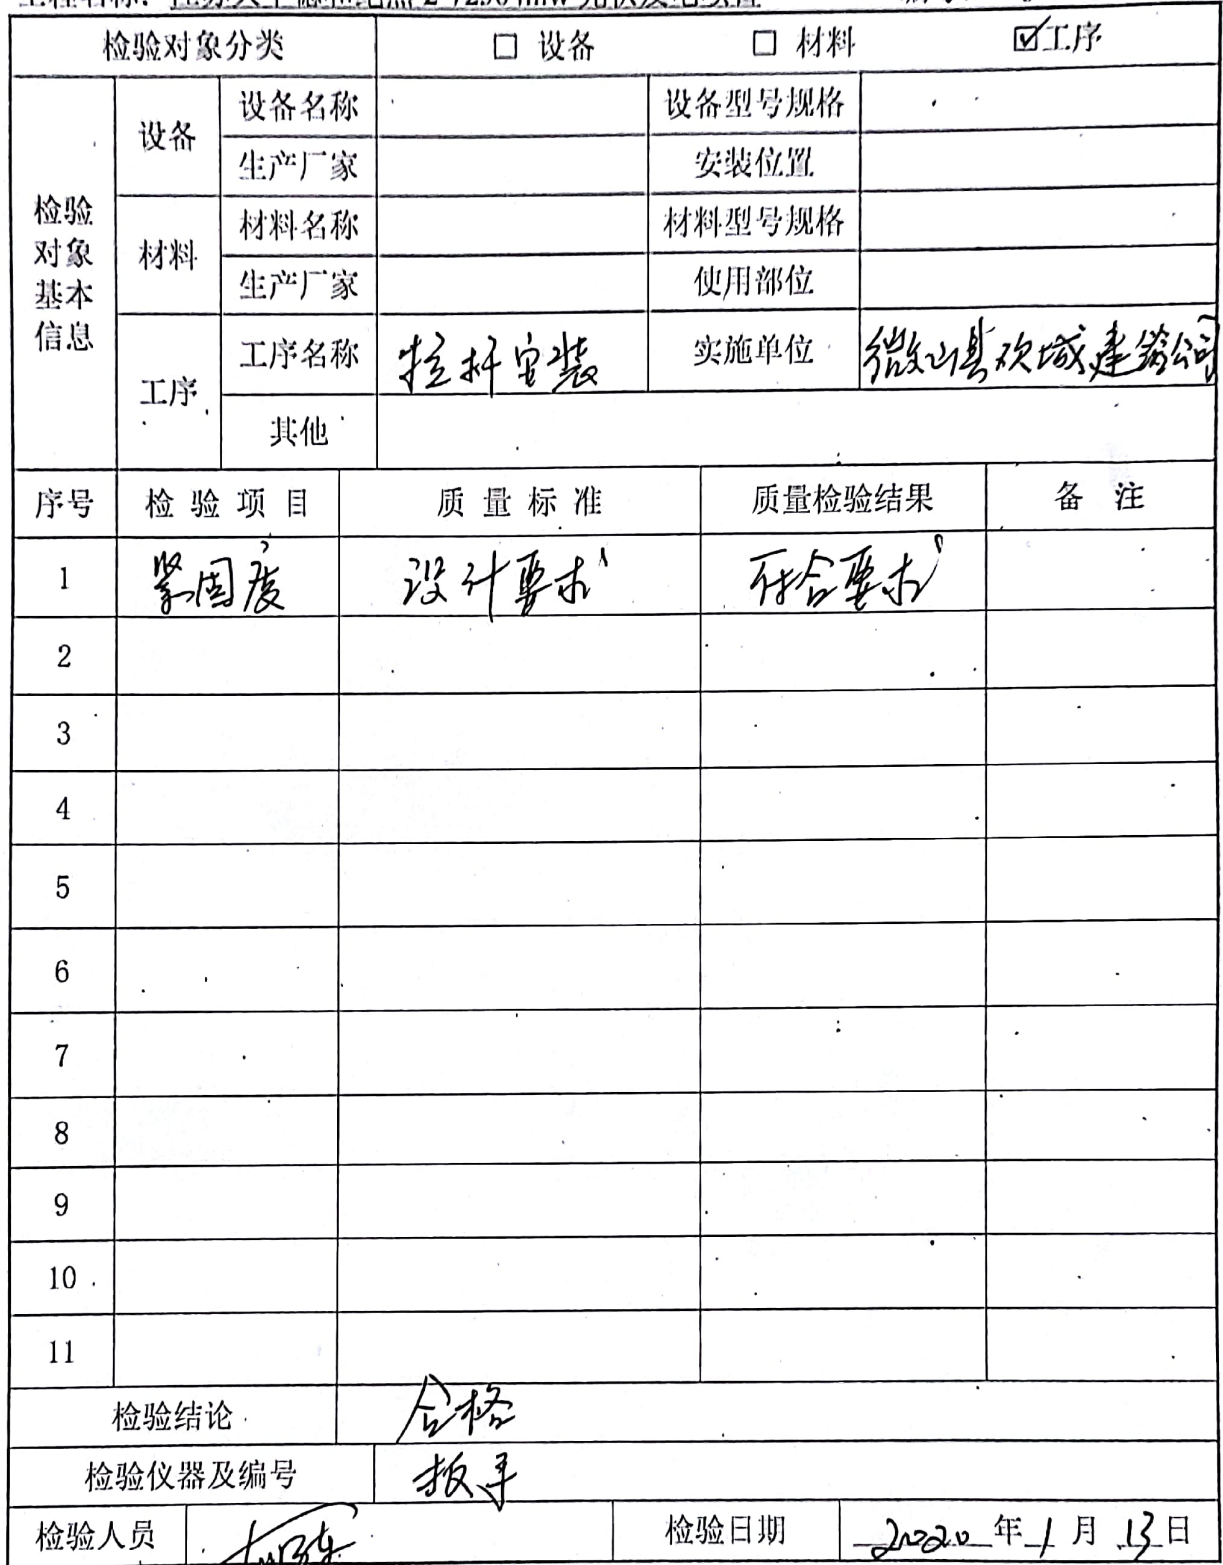 检验对象分类 □ 设备 □ 材料 ☑工序
检验对象基本信息
设备 设备名称 设备型号规格
生产厂家 安装位置
材料 材料名称 材料型号规格
生产厂家 使用部位
工序 工序名称 拉杆安装 实施单位 微山县欢城建筑公司
其他
序号 检验项目 质量标准 质量检验结果 备注
1 紧固度 设计要求 符合要求
2
3
4
5
6
7
8
9
10
11
检验结论 合格
检验仪器及编号 扳手
检验人员 检验日期 2020年1月13日